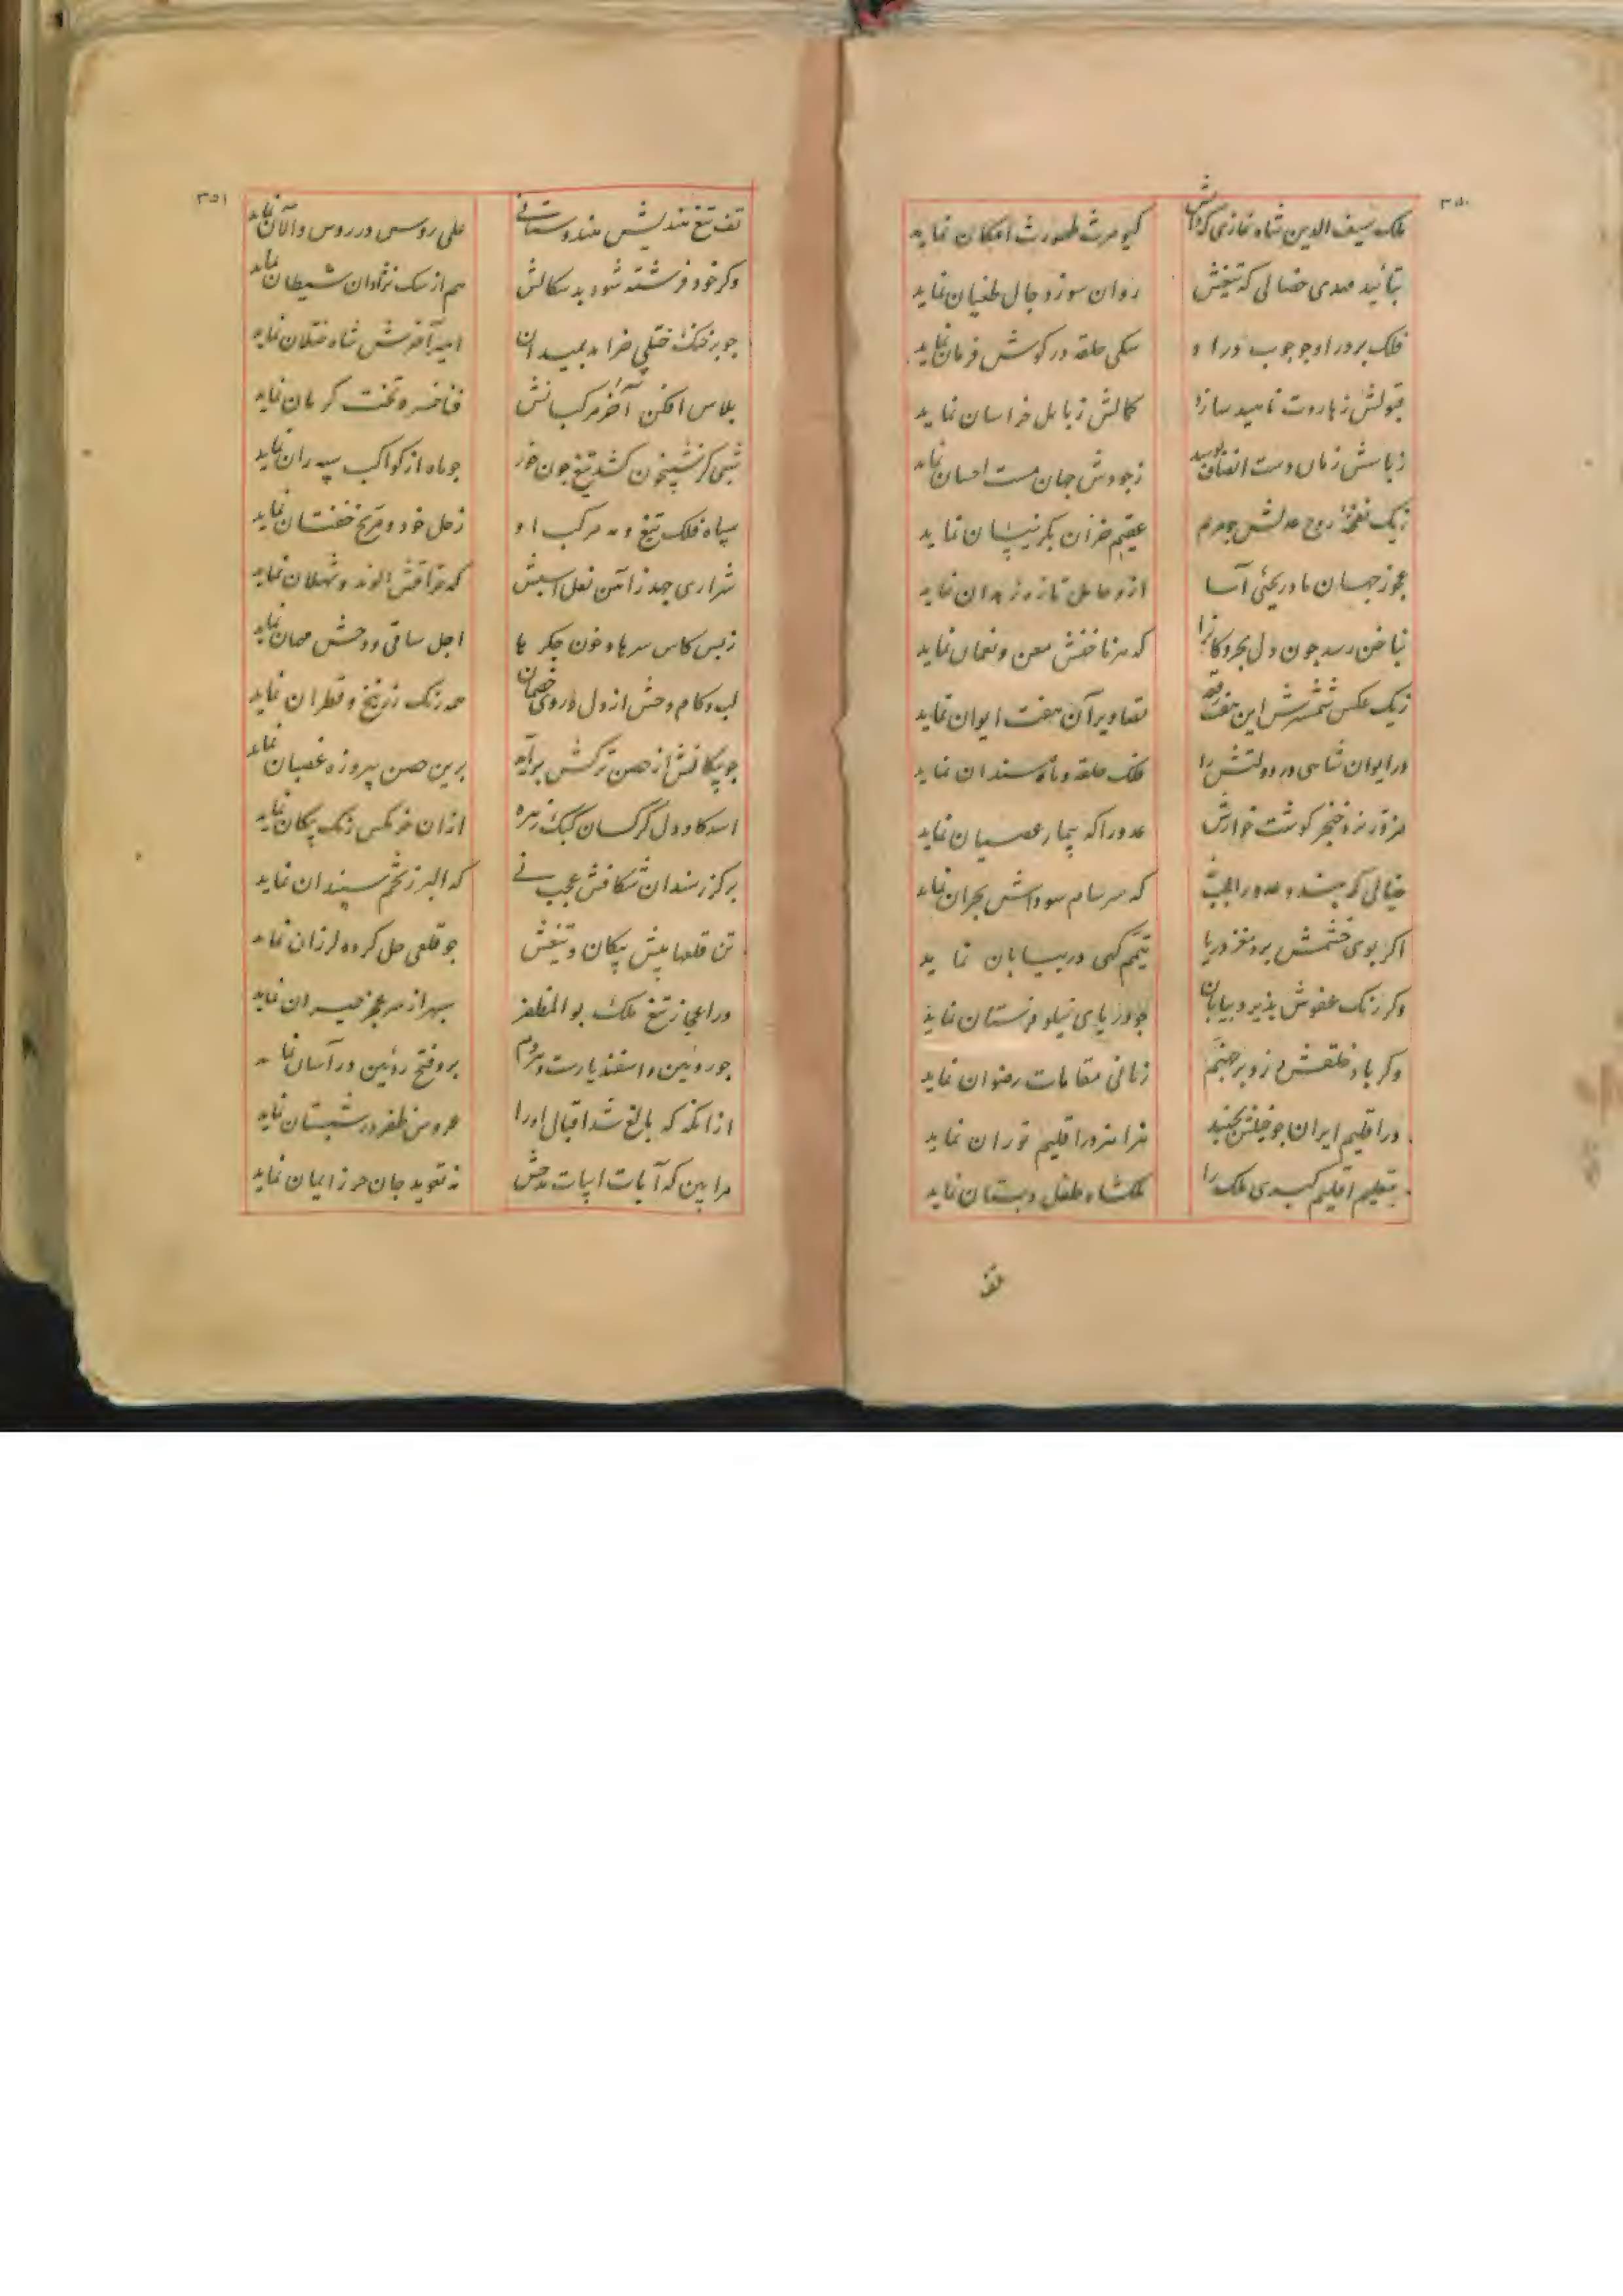 ۳۵۰
ملک سیف الدین شاه غازی که ذاتش کیومرث طهورث امکان نماید
بتائید مهدی خصالی که تیغش روان سوز دجال طغیان نماید
فلک بر در او چو چوب در او سکی حلقه در کوش فرمان نماید
قبولش ز هاروت ناهید سازد کمالش ز بابل خراسان نماید
زبانش زمان دست انصاف بوسد ز جودش جهان مست احسان نماید
ز یک نفخهٔ روح عدلش جو مریم عقیم خزان بکر نیسان نماید
عجوز جهان مادر یحیی آسا ازو حامل تازه زهدان نماید
بناخن رسد چون دل بحر و کانرا که هر ناخنش معن و نعمان نماید
ز یک عکس شمشیرش این هفت رقعه تصاویر آن هفت ایوان نماید
در ایوان شاهی در دولتش را فلک حلقه و ماه سندان نماید
مزور نزد خنجر کوشت خوارش عدو را که بیمار عصیان نماید
خیالی که بندد عدو را عجب که سرسام سوداش بحران نماید
اکر بوی خشمش برد مغز دریا تیمم کهی در بیابان نماید
وکر رنک عفوش پذیرد بیابان جو دریای نیلوفرستان نماید
وکر باد خلقش وزد بر جهنم زبانی مقامات رضوان نماید
در اقلیم ایران جو خیلش بجنبد هزاهز در اقلیم توران نماید
بتعلیم اقلیم کیری ملک را ملکشاه طفل دبستان نماید
تف
۳۵۱
تف تیغ هندیش هندوستانی علی روس در روس و آلان نماید
وکر خود فرشته شود بد سکالش هم از سک نژادان شیطان نماید
جو بر خنک ختلی خرامد بمیدان امیر آخرش شاه ختلان نماید
پلاس افکن آخر مرکبانش فناخسرو تخت کرمان نماید
شبی کز شبیخون کشد تیغ چون خور جو ماه از کواکب سپه ران نماید
سپاه فلک تیغ و مه مرکب او زحل خود و مریخ خفتان نماید
شراری جهد ز آهن نعل اسبش که حراقش الوند و ثهلان نماید
ز بس کاس سرها و خون جکرها اجل ساقی و وحش مهمان نماید
لب و کام وحش از دل و روی خصمان همه رنک زرنیخ و قطران نماید
جو پیکانش از حصن ترکش برآید برین حصن پیروزه غضبان نماید
اسد کاو دل کرکسان کبک زهره ازان خرمکس رنک پیکان نماید
برکز رسندان شکافش عجب نی که البرز تخم سپندان نماید
تن قلعها پیش پیکان و تیغش جو قلعی حل کرده لرزان نماید
در اعجاز تیغ ملک بوالمظفر سپهر از سر عجز حیران نماید
جو روئین دز اسفندیارست و هر دم برو فتح روئین در آسان نماید
از انکه که بالغ شد اقبال او را عروس ظفر در شبستان نماید
مرا بین که آیات ابیات مدحش نه تعوید جان حرز ایمان نماید